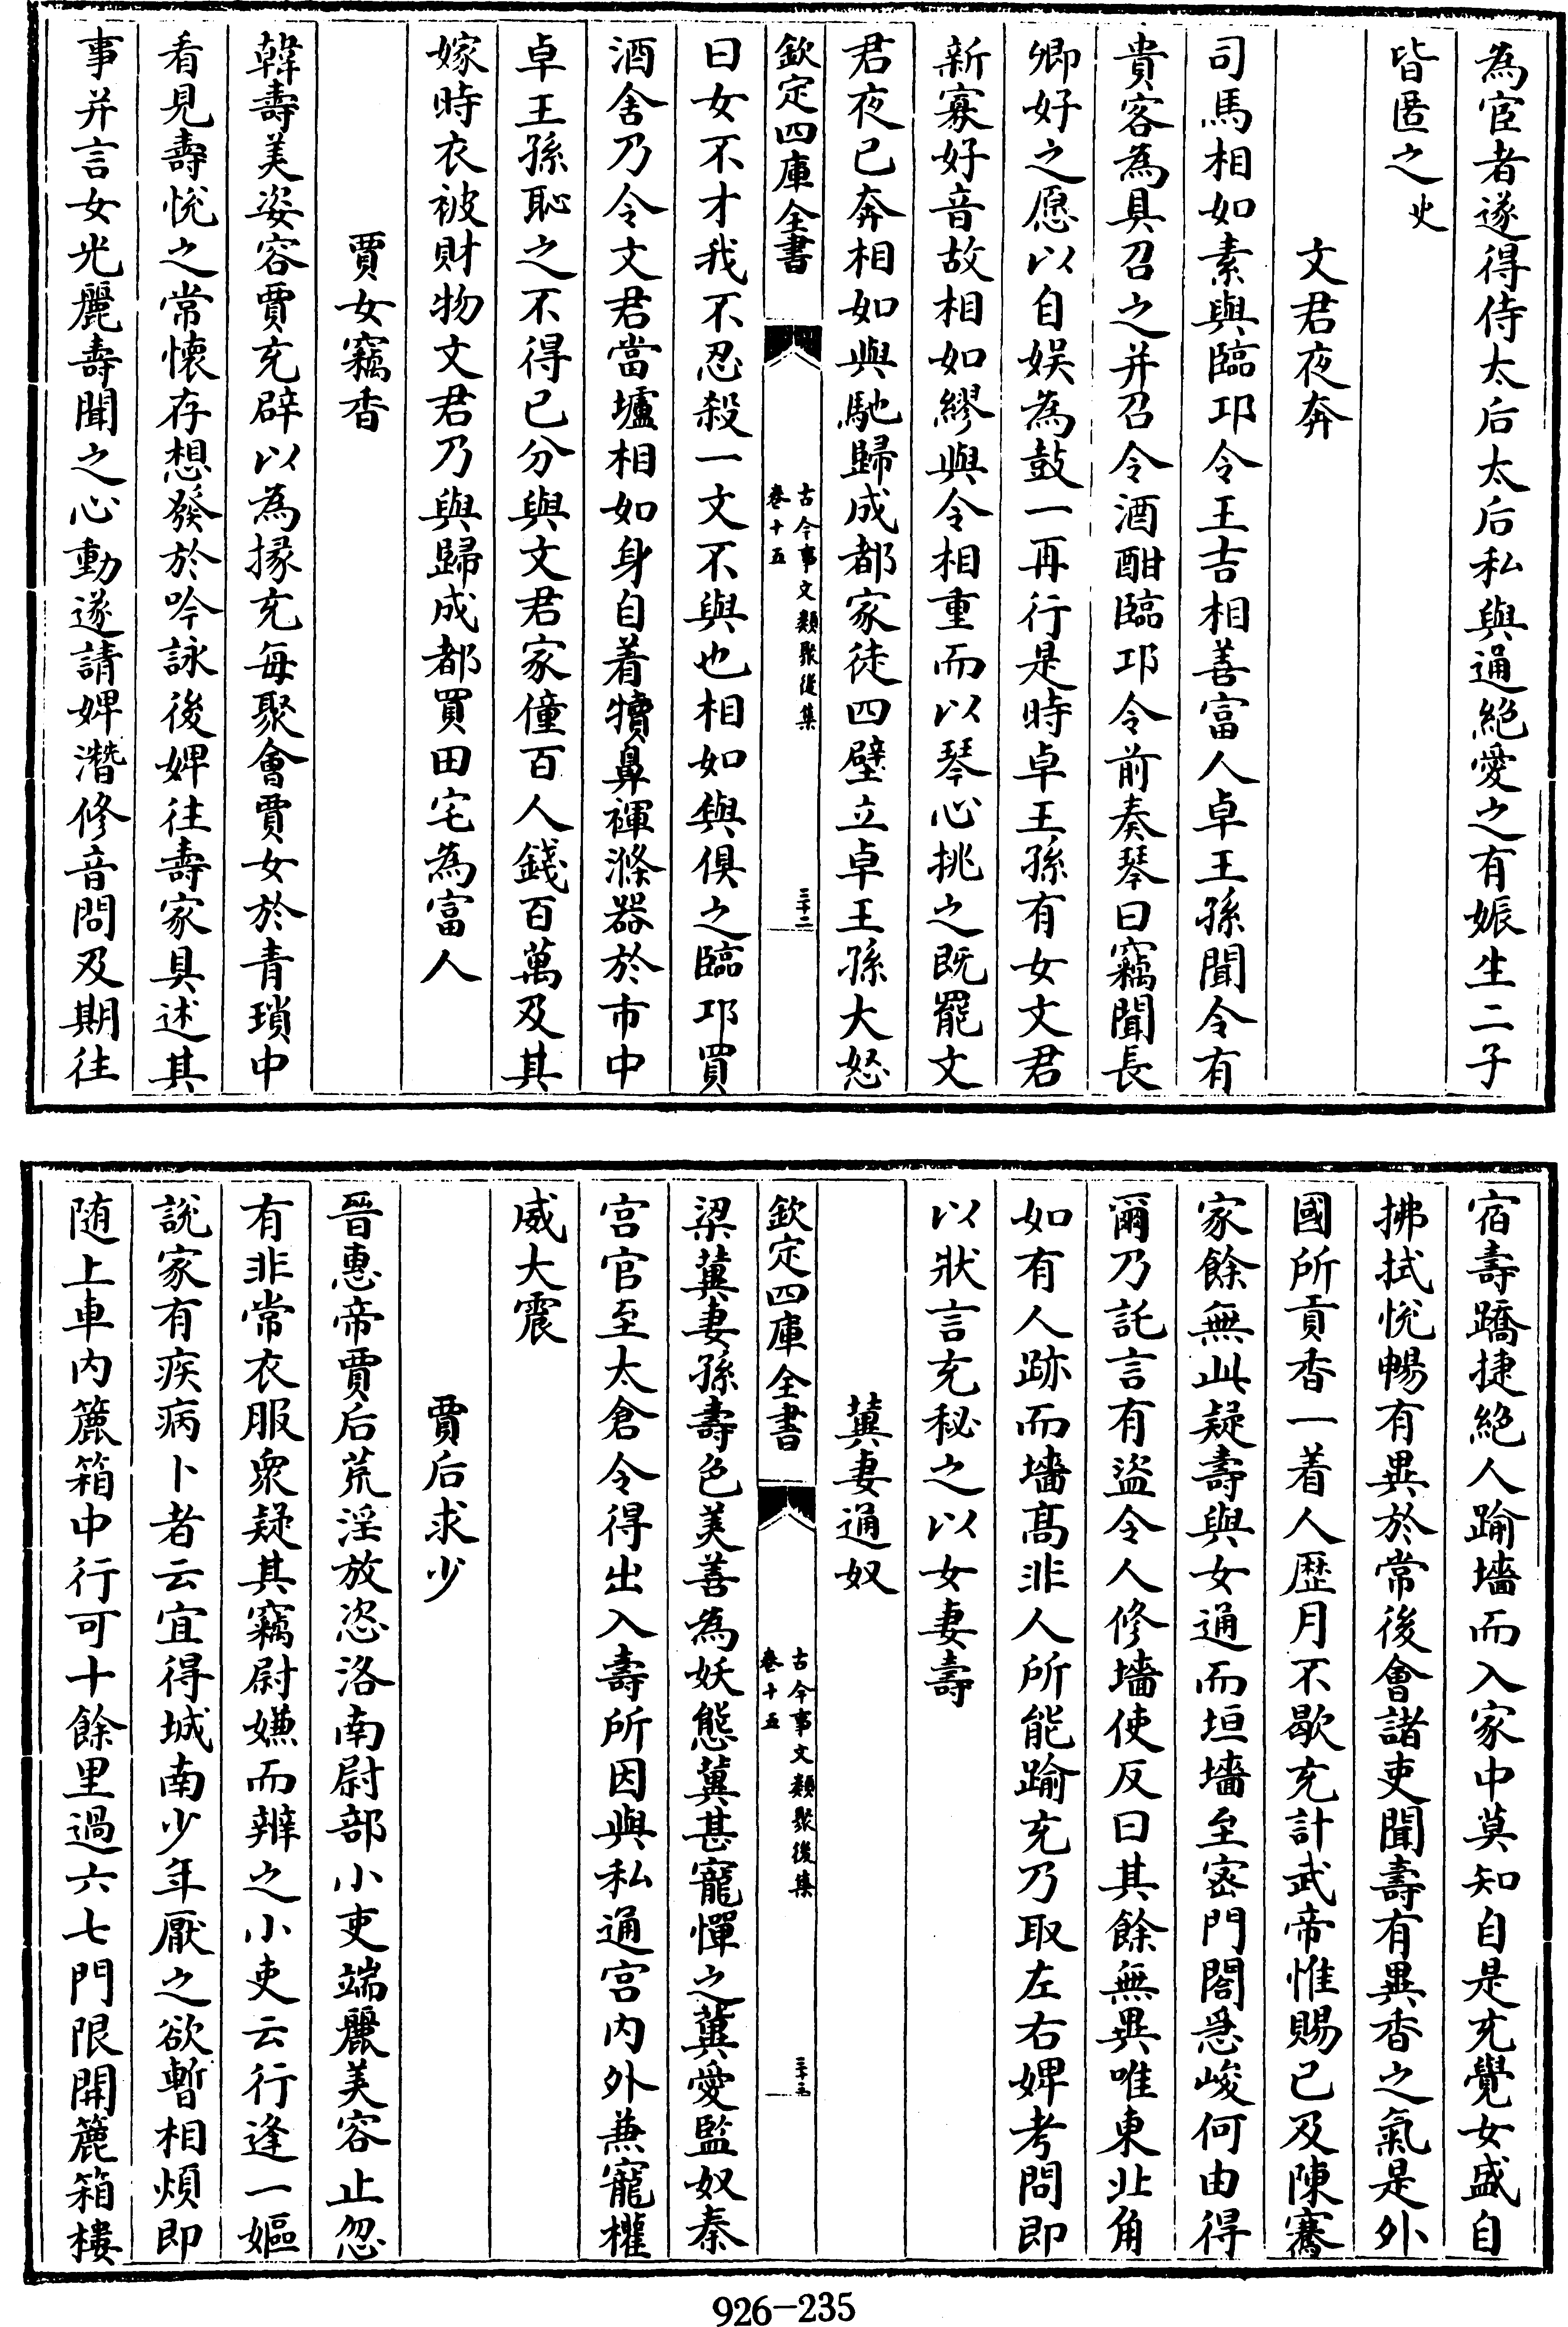 為宦者遂得侍太后太后私與通絶愛之有娠生二子
皆匿之史
文君夜奔
司馬相如素與臨邛令王吉相善富人卓王孫聞令有
貴客為具召之并召令酒酣臨邛令前奏琴曰竊聞長
卿好之愿以自娱為鼓一再行是時卓王孫有女文君
新寡好音故相如繆與令相重而以琴心挑之既罷文
君夜已奔相如與馳歸成都家徒四壁立卓王孫大怒
欽定四庫全書
古今事文類聚後集
卷十五
三十二
曰女不才我不忍殺一文不與也相如與俱之臨邛買
酒舍乃令文君當壚相如身自着犢鼻褌滌器於市中
卓王孫恥之不得已分與文君家僮百人錢百萬及其
嫁時衣被財物文君乃與歸成都買田宅為富人
賈女竊香
韓壽美姿容賈充辟以為掾充每聚會賈女於青瑣中
看見壽悅之常懷存想發於吟詠後婢往壽家具述其
事并言女光麗壽聞之心動遂請婢潛修音問及期往
宿壽蹻捷絶人踰墻而入家中莫知自是充覺女盛自
拂拭悅暢有異於常後會諸吏聞壽有異香之氣是外
國所貢香一着人歷月不歇充計武帝惟賜已及陳騫
家餘無此疑壽與女通而垣墻至密門閤急峻何由得
爾乃託言有盜令人修墻使反曰其餘無異唯東北角
如有人跡而墻髙非人所能踰充乃取左右婢考問即
以狀言充秘之以女妻壽
冀妻通奴
欽定四庫全書
古今事文類聚後集
卷十五
三十三
梁冀妻孫壽色美善為妖態冀甚寵憚之冀愛監奴秦
宫官至太倉令得出入壽所因與私通宫内外兼寵權
威大震
賈后求少
晉惠帝賈后荒淫放恣洛南尉部小吏端麗美容止忽
有非常衣服衆疑其竊尉嫌而辨之小吏云行逢一嫗
說家有疾病卜者云宜得城南少年厭之欲暫相煩即
随上車内簏箱中行可十餘里過六七門限開簏箱樓
926-235